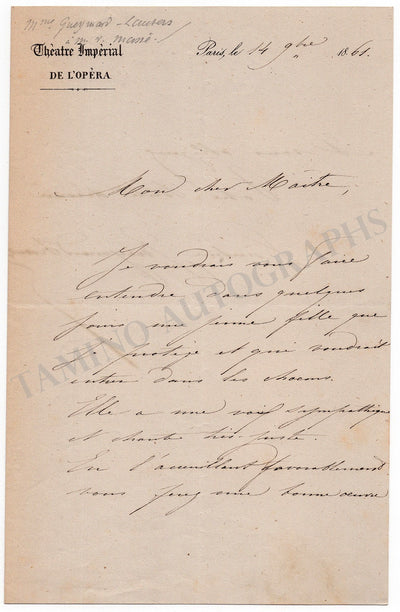 Mme Gueymard-Lauters
à Mr V. Massé
Théâtre Impérial
DE L'OPÉRA
Paris, le 14 9bre 1861.
Mon cher Maître,
Je voudrais vous faire
entendre dans quelques
jours une jeune fille que
je protège et qui voudrait
entrer dans les chœurs.
Elle a une voix sympathique
et chante très juste.
En l'accueillant favorablement
vous ferez une bonne œuvre
TAMINO AUTOGRAPHS